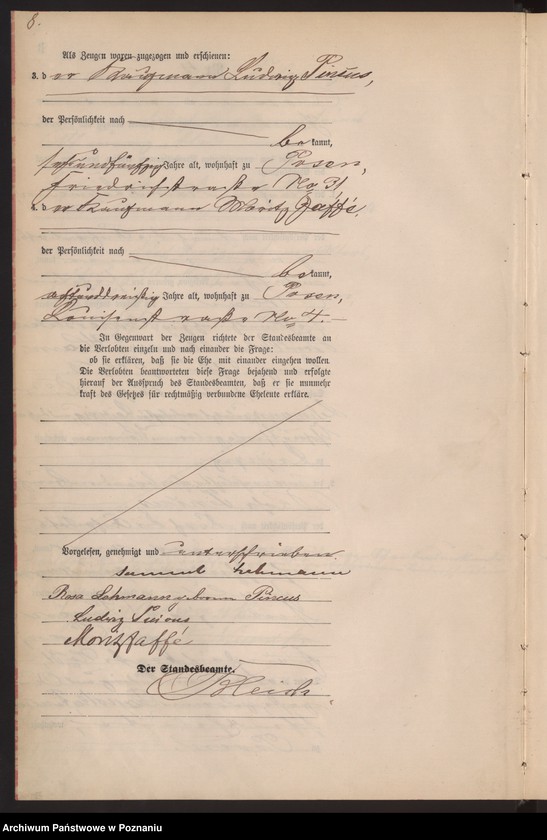 8.
Als Zeugen waren zugezogen und erschienen:
3. der Kaufmann Ludwig Pincus,
der Persönlichkeit nach
bekannt,
Jahre alt, wohnhaft zu Posen,
Friedrichstraße No 31
4. der Kaufmann Moritz Jaffé,
der Persönlichkeit nach
bekannt,
achtunddreißig Jahre alt, wohnhaft zu Posen,
Louisenstraße No 4.
In Gegenwart der Zeugen richtete der Standesbeamte an
die Verlobten einzeln und nach einander die Frage:
ob sie erklären, daß sie die Ehe mit einander eingehen wollen.
Die Verlobten beantworteten diese Frage bejahend und erfolgte
hierauf der Ausspruch des Standesbeamten, daß er sie nunmehr
kraft des Gesetzes für rechtmäßig verbundene Eheleute erkläre.
Vorgelesen, genehmigt und unterschrieben
Samuel Lehmann
Rosa Lehmann geborne Pincus
Ludwig Pincus
Moritz Jaffé
Der Standesbeamte.
Archiwum Państwowe w Poznaniu